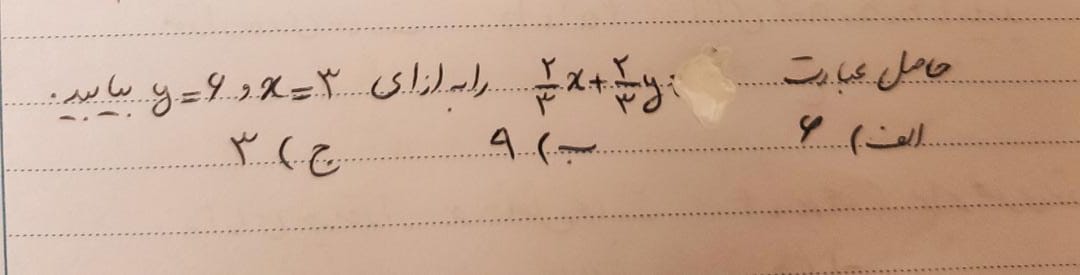 حاصل عبارت ۲/۳x + ۲/۳y را به ازای x=۳ و y=۶ بیابید.
الف) ۶ ب) ۹ ج) ۳